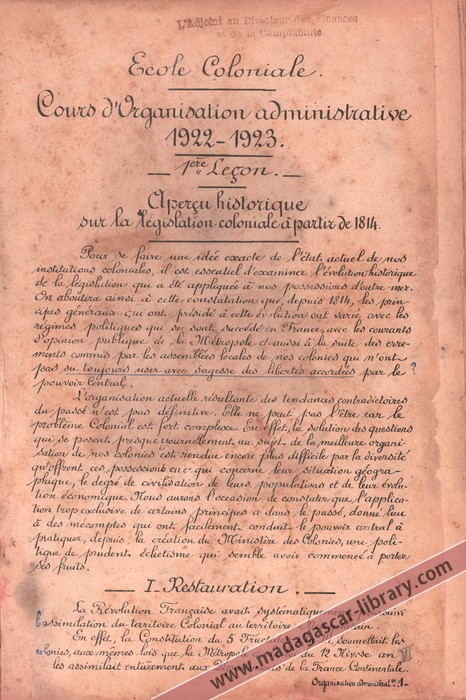 L'Adjoint au Directeur des Finances
et de la Comptabilité
Ecole Coloniale.
Cours d'Organisation administrative
1922-1923.
1ère Leçon.
Aperçu historique
sur la législation coloniale à partir de 1814.
Pour se faire une idée exacte de l'état actuel de nos
institutions coloniales, il est essentiel d'examiner l'évolution historique
de la législation qui a été appliquée à nos possessions d'outre-mer.
On aboutira ainsi à cette constatation que, depuis 1814, les prin-
cipes généraux qui ont présidé à cette évolution ont varié avec les
régimes politiques qui se sont succédé en France, avec les courants
d'opinion publique de la Métropole et aussi à la suite des erre-
ments commis par les assemblées locales de nos colonies qui n'ont
pas su toujours user avec sagesse des libertés accordées par le ?
pouvoir Central.
L'organisation actuelle résultante des tendances contradictoires
du passé n'est pas définitive. Elle ne peut pas l'être car le
problème Colonial est fort complexe. En effet, la solution des questions
qui se posent presque journellement au sujet de la meilleure organi-
sation de nos colonies est rendue encore plus difficile par la diversité
qu'offrent ces possessions en ce qui concerne leur situation géogra-
phique, le degré de civilisation de leurs populations et de leur évolu-
tion économique. Nous aurons l'occasion de constater que l'applica-
tion trop exclusive de certains principes a dans le passé, donné lieu
à des mécomptes qui ont facilement conduit le pouvoir central à
pratiquer, depuis la création du Ministère des Colonies, une poli-
tique de prudent éclectisme qui semble avoir commencé à porter
ses fruits.
I. Restauration.
La Révolution Française avait systématiquement
l'assimilation du territoire Colonial au territoire
En effet, la Constitution du 5 Fructidor soumettait les
colonies, aux mêmes lois que la Métropole du 12 Nivôse an VI
les assimilait entièrement aux de la France Continentale.
Organisation administrat. n° 1-
www.madagascar-library.com